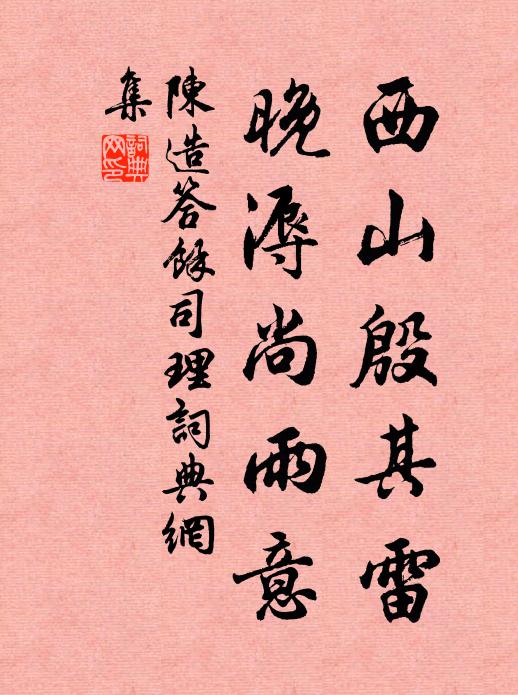 西山殷其雷
晚溽尚雨意
陳造答餘司理詞典網
集
詞典網印